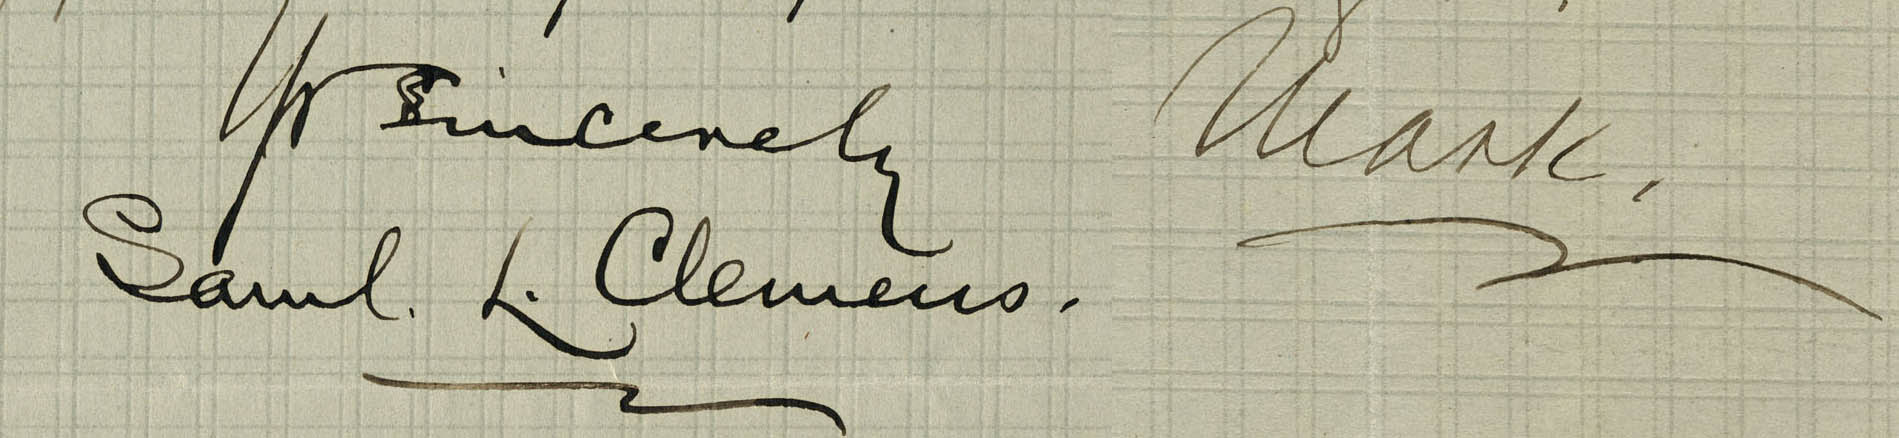 Yr Sincerely
Saml. L. Clemens.
Mark.